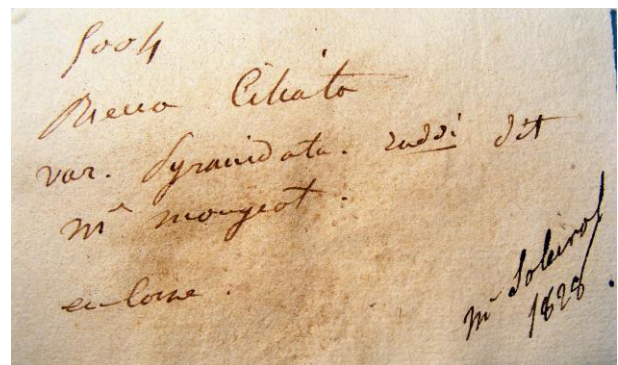 5004
Riccia Ciliata
var. Pyramidata. raddi dit
mr mougeot.
en Corse.
mr Soleirol
1828.